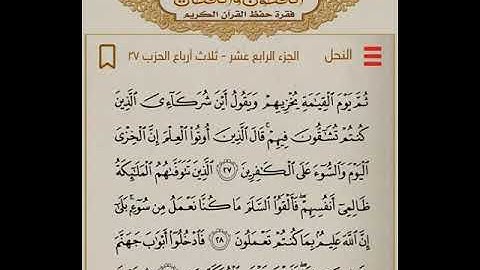 فقرة حفظ القرآن الكريم
النحل
الجزء الرابع عشر - ثلاث أرباع الحزب ٢٧
ثُمَّ يَوْمَ الْقِيَٰمَةِ يُخْزِيهِمْ وَيَقُولُ أَيْنَ شُرَكَآءِىَ الَّذِينَ
كُنتُمْ تُشَٰٓقُّونَ فِيهِمْ ۚ قَالَ الَّذِينَ أُوتُوا۟ الْعِلْمَ إِنَّ الْخِزْىَ
الْيَوْمَ وَالسُّوٓءَ عَلَى الْكَٰفِرِينَ ٢٧ الَّذِينَ تَتَوَفَّىٰهُمُ الْمَلَٰٓئِكَةُ
ظَالِمِىٓ أَنفُسِهِمْ ۖ فَأَلْقَوُا۟ السَّلَمَ مَا كُنَّا نَعْمَلُ مِن سُوٓءٍۭ ۚ بَلَىٰٓ
إِنَّ اللَّهَ عَلِيمٌۢ بِمَا كُنتُمْ تَعْمَلُونَ ٢٨ فَادْخُلُوٓا۟ أَبْوَٰبَ جَهَنَّمَ